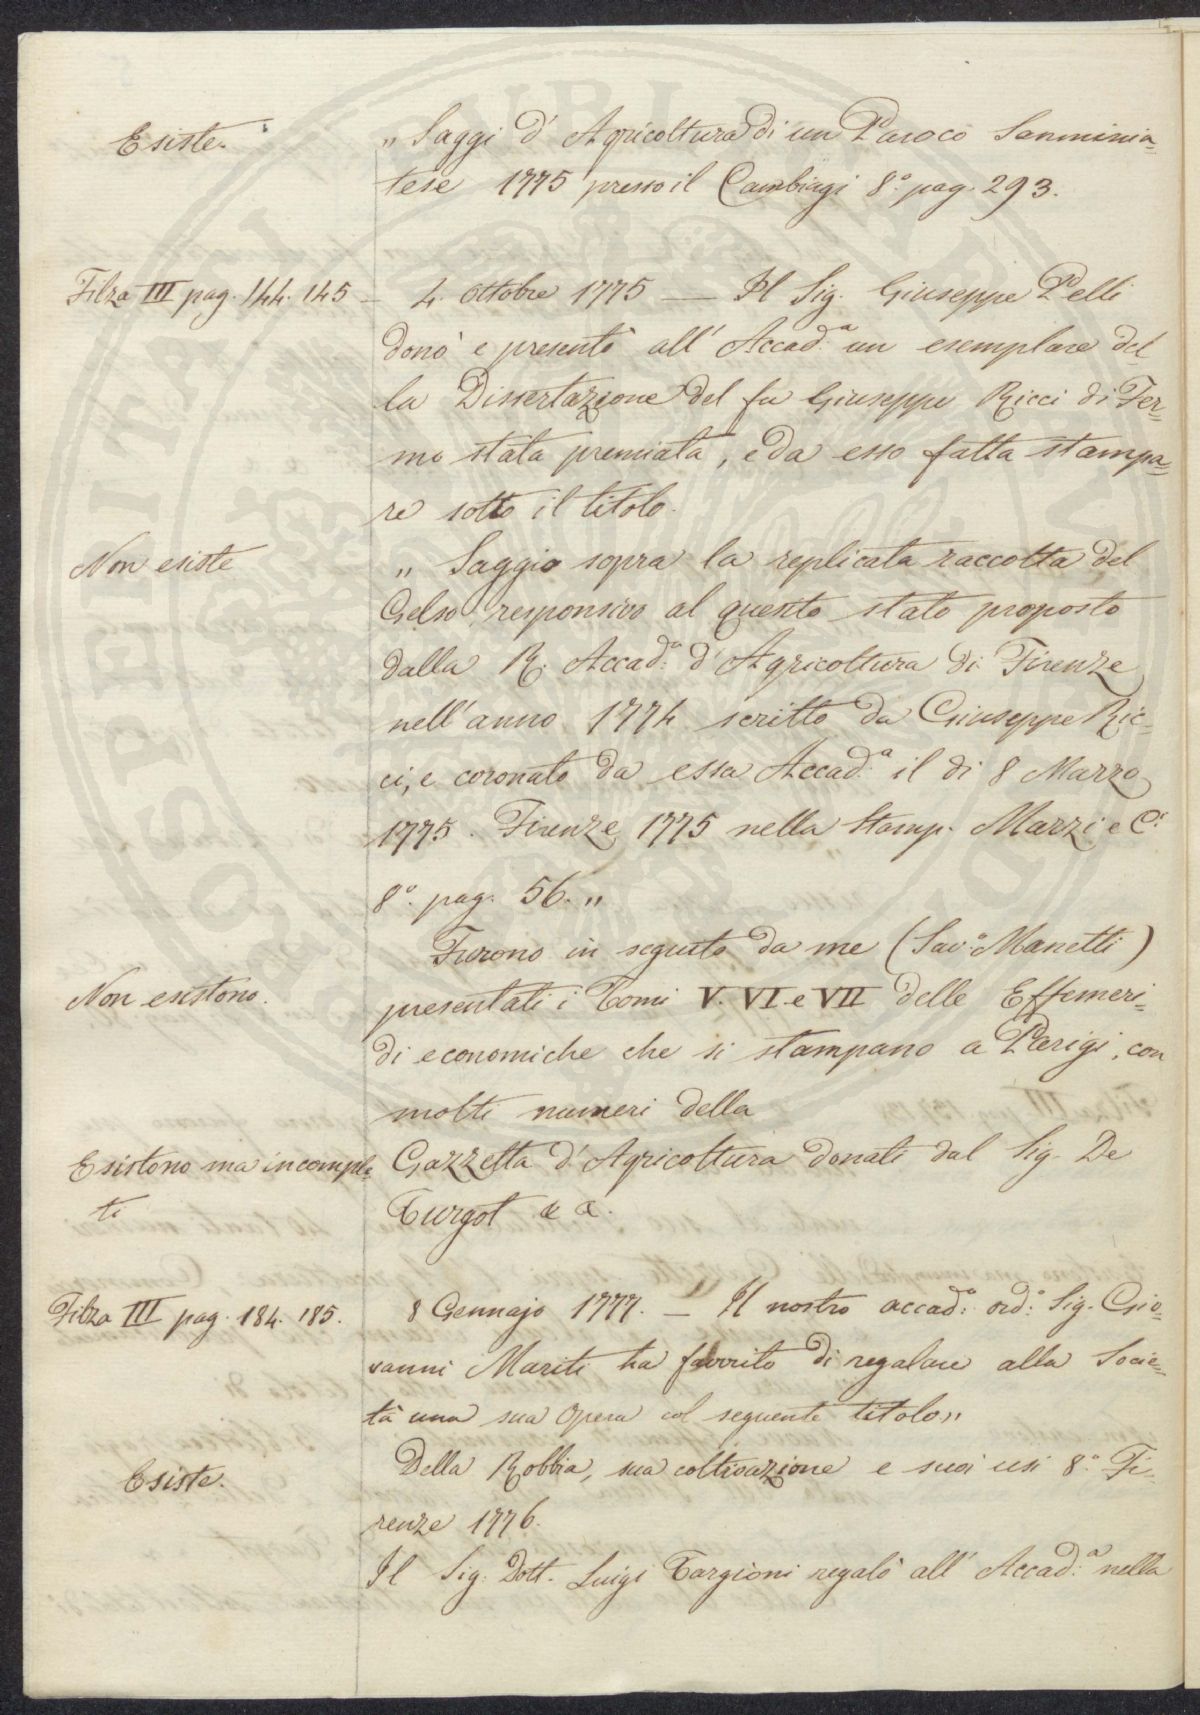 Esiste.
„ Saggi d'Agricoltura di un Paroco Sanminia=
tese 1775 presso il Cambiagi 8.° pag. 293.
Filza III pag. 144. 145 — 4. Ottobre 1775 — Il Sig. Giuseppe Pelli
donò e presentò all'Accad.ª un esemplare del=
la Dissertazione del fu Giuseppe Ricci di Fer=
mo stata premiata, e da esso fatta stampa=
re sotto il titolo.
Non esiste
„ Saggio sopra la replicata raccolta del
Gelso, responsivo al quesito stato proposto
dalla R. Accad.ª d'Agricoltura di Firenze
nell'anno 1774 scritto da Giuseppe Ric=
ci, e coronato da essa Accad.ª il di 8 Marzo
1775. Firenze 1775 nella Stamp. Mazzi e C.i
8.° pag. 56. „
Furono in seguito da me (Sav.° Manetti)
Non esistono.
presentati i Tomi V. VI. e VII delle Effemeri=
di economiche che si stampano a Parigi, con
molti numeri della
Esistono ma incomple=
ti
Gazzetta d'Agricoltura donati dal Sig. De
Turgot & &.
Filza III pag. 184. 185.
8 Gennajo 1777. — Il nostro accad.° ord.° Sig. Gio=
vanni Mariti ha favorito di regalare alla Socie=
tà una sua Opera col seguente titolo„
Esiste.
Della Robbia, sua coltivazione e suoi usi 8.° Fi=
renze 1776.
Il Sig. Dott. Luigi Targioni regalò all'Accad.ª nella
SOCIETA
PROSPERITATI PUBLICAE